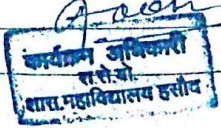 कार्यक्रम अधिकारी
रा.से.यो.
शास.महाविद्यालय हसौद